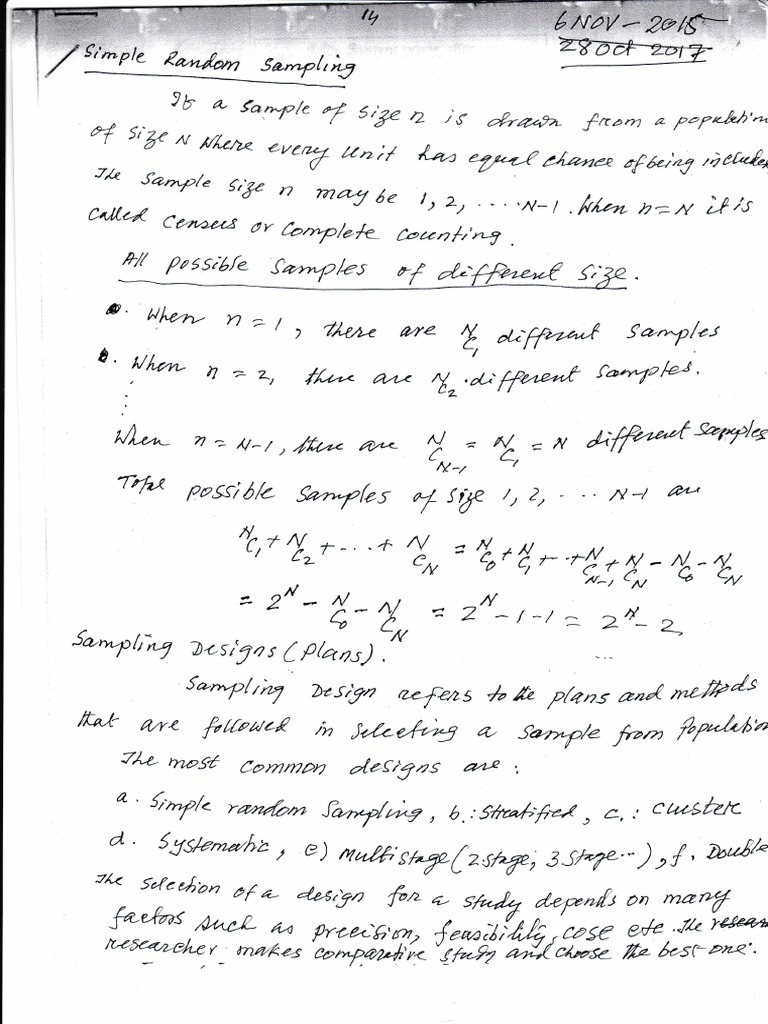 14
6 NOV - 2015
28 Oct 2017
Simple Random Sampling
If a sample of size n is drawn from a population
of size N where every unit has equal chance of being included
The sample size n may be 1, 2, .... N-1. When n = N it is
called Census or complete counting.
All possible samples of different size.
a. When n = 1, there are NC1 different samples
b. When n = 2, there are NC2 different samples.
⋮
When n = N-1, there are NCN-1 = NC1 = N different samples
Total possible samples of size 1, 2, .... N-1 are
NC1 + NC2 + .... + NCN = NC0 + NC1 + ..+ NCN-1 + NCN - NC0 - NCN
= 2^N - NC0 - NCN = 2^N - 1 - 1 = 2^N - 2
...
Sampling Designs (Plans).
Sampling Design refers to the plans and methods
that are followed in selecting a sample from population
The most common designs are :
a. Simple random Sampling, b.: Stratified, c.: Cluster
d. Systematic, e) Multistage (2 stage, 3 stage...), f. Double
The selection of a design for a study depends on many
factors such as precision, feasibility, cost etc. The resear
researcher makes comparative study and choose the best one.